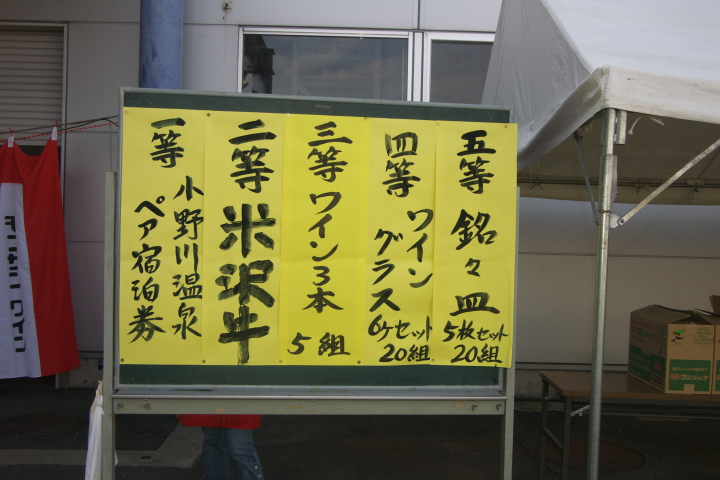 一等
小野川温泉
ペア宿泊券
二等
米沢牛
三等
ワイン3本
5組
四等
ワイン
グラス
6ケセット
20組
五等
銘々皿
5枚セット
20組
ワイン